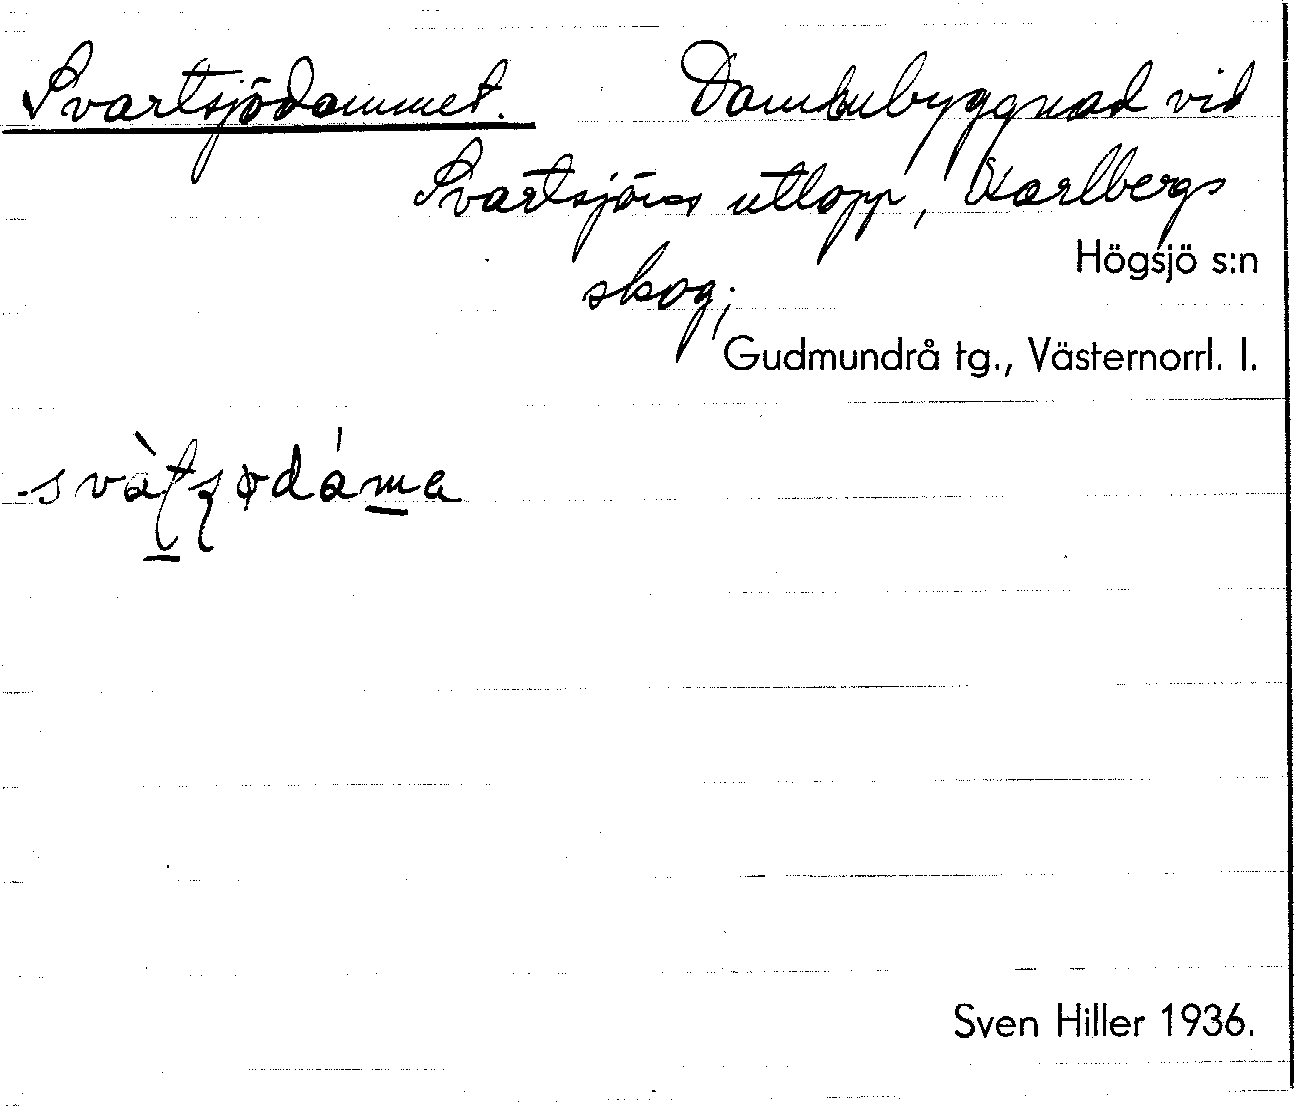 Svartsjödammet. Dambyggnad vid
Svartsjöns utlopp, Karlbergs
Högsjö s:n
skog;
Gudmundrå tg., Västernorrl. l.
Sven Hiller 1936.